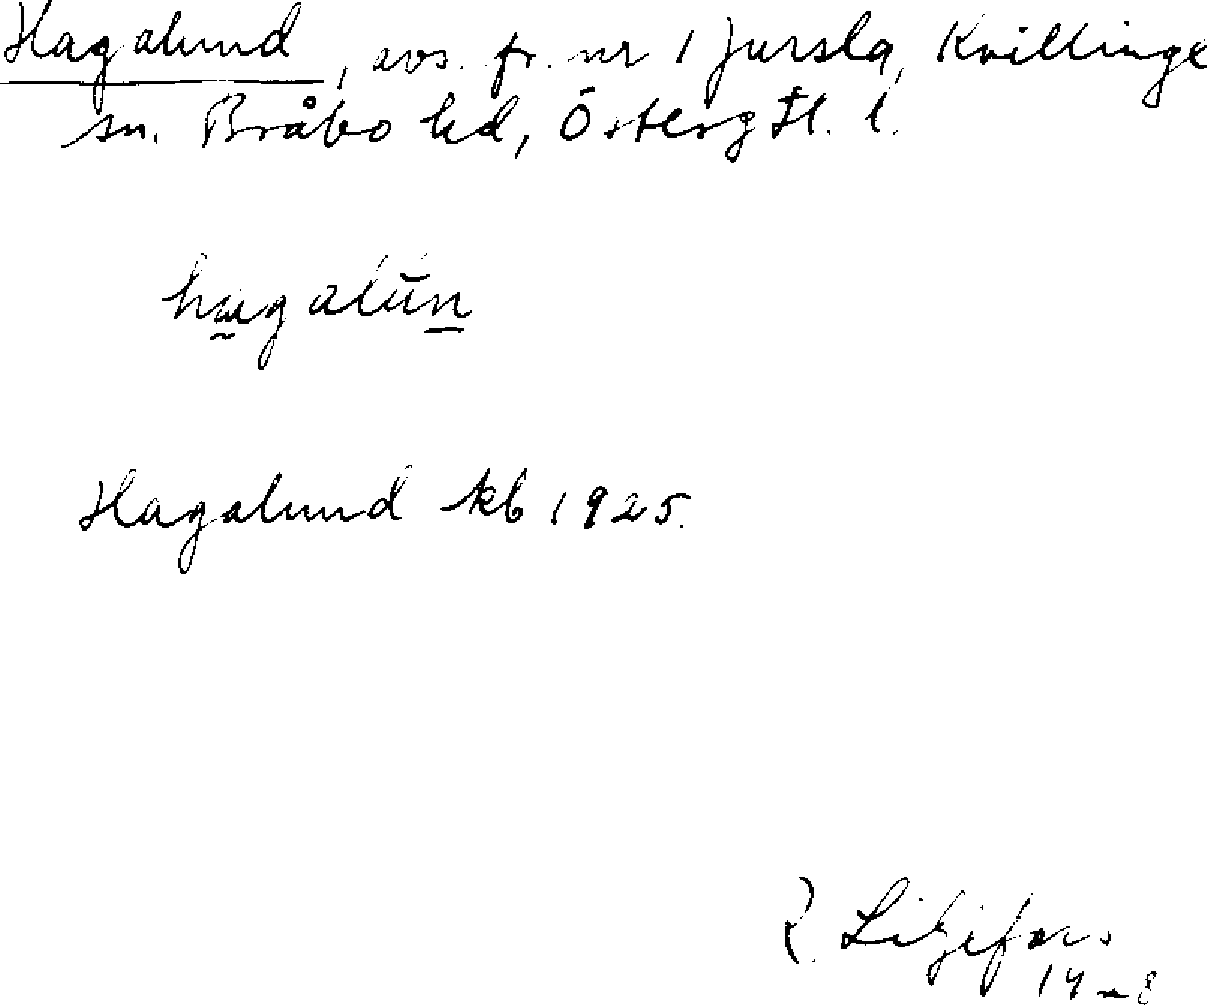 Hagalund, avs. fr. nr 1 Jursla, Kvillinge
sn. Bråbo hd, Östergötl. l.
hagalŭn
Hagalund kb 1925.
R. Liljefors